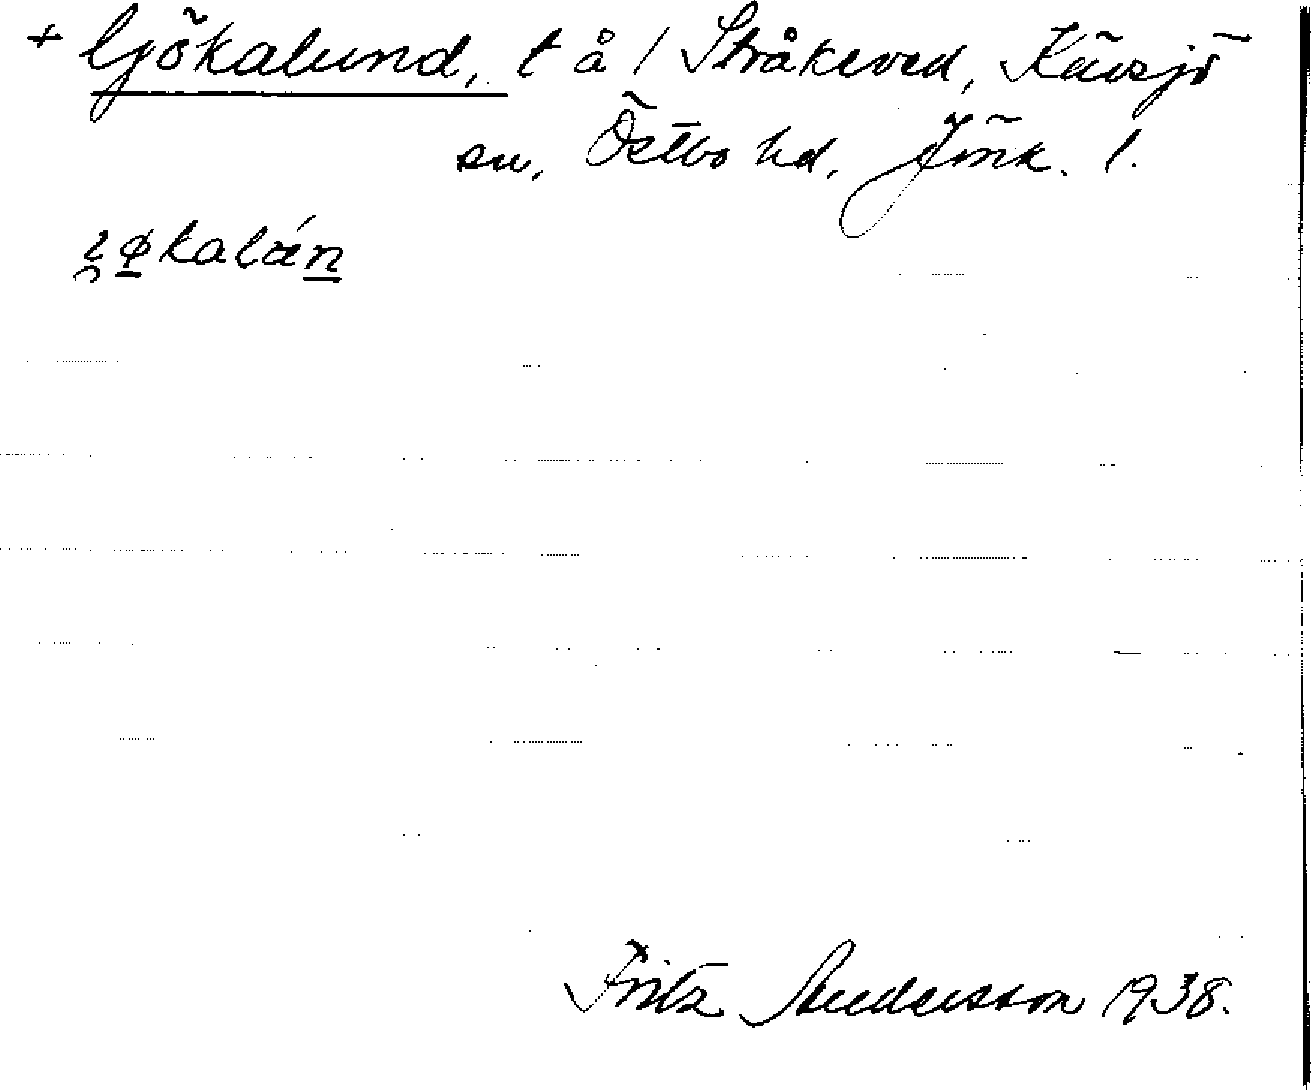 + Gjökalund, t å / Stråkeved, Kävsjö
sn, Östbo hd, Jönk. l.
Fritz Andersson 1938.